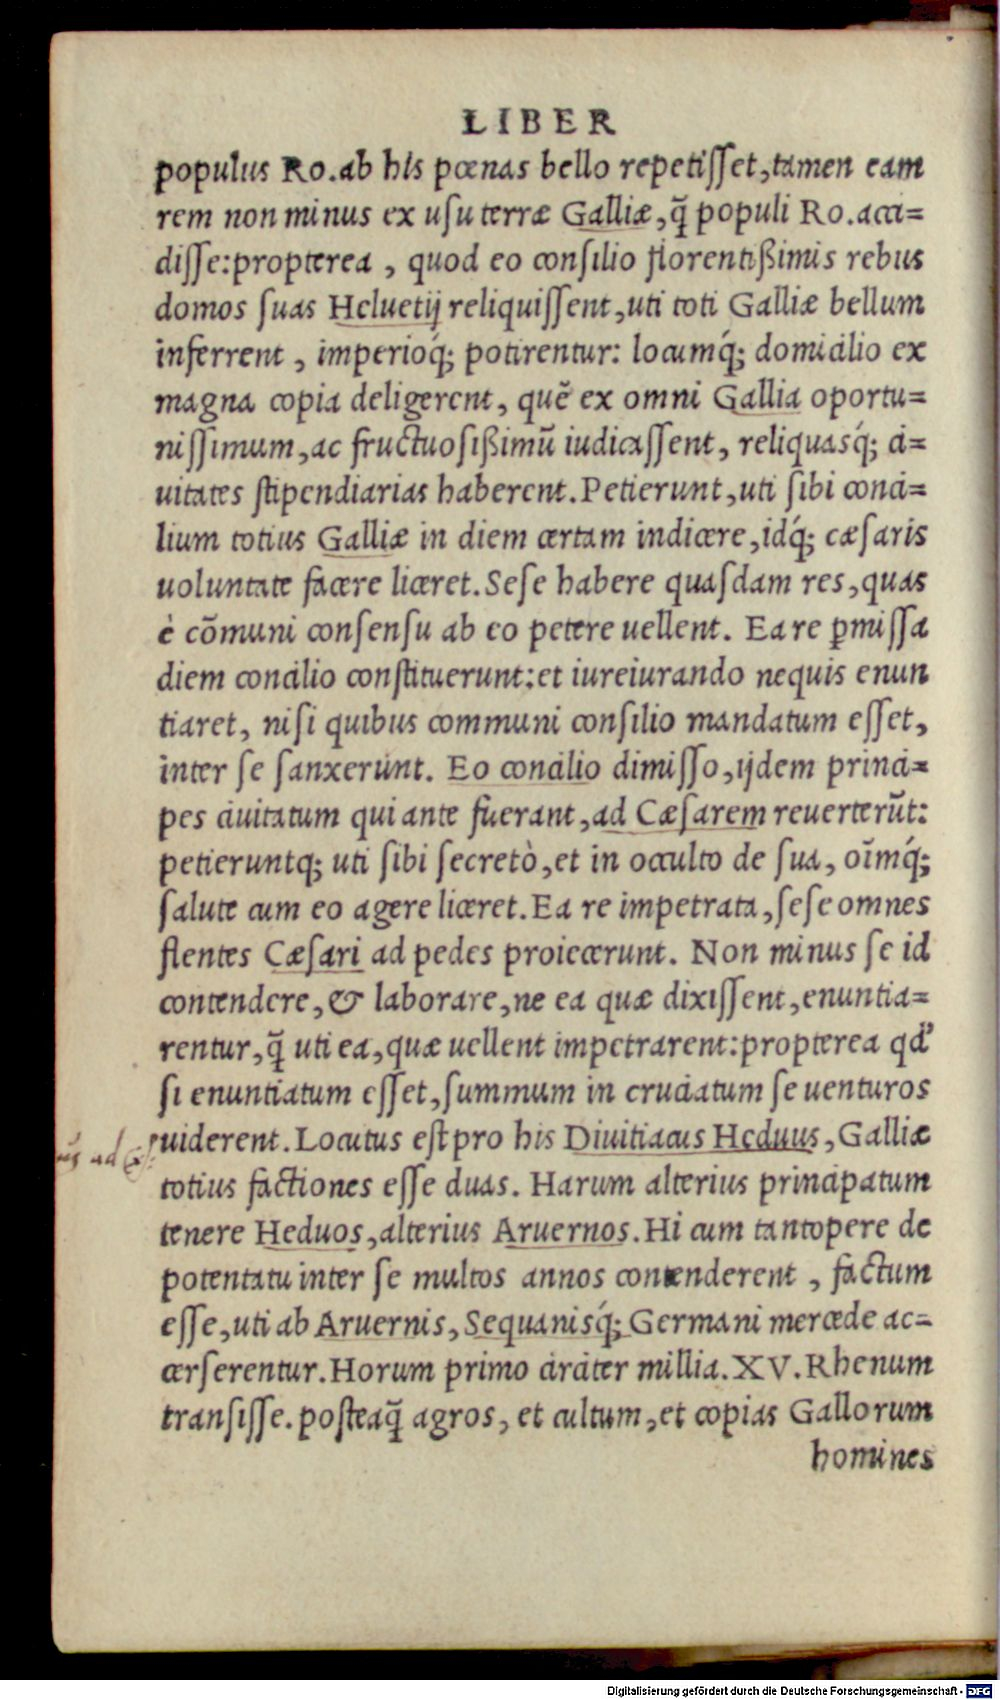 LIBER
populus Ro. ab his pœnas bello repetisset, tamen eam
rem non minus ex usu terræ Galliæ, q̃ populi Ro. acci=
disse: propterea, quod eo consilio florentißimis rebus
domos suas Heluetij reliquissent, uti toti Galliæ bellum
inferrent, imperioq́; potirentur: locumq́; domicilio ex
magna copia deligerent, quẽ ex omni Gallia oportu=
nissimum, ac fructuosißimũ iudicassent, reliquasq́; ci=
uitates stipendiarias haberent. Petierunt, uti sibi conci=
lium totius Galliæ in diem certam indicere, idq́; cæsaris
uoluntate facere liceret. Sese habere quasdam res, quas
è cõmuni consensu ab eo petere uellent. Ea re ꝑmissa
diem concilio constituerunt: et iureiurando nequis enun
tiaret, nisi quibus communi consilio mandatum esset,
inter se sanxerunt. Eo concilio dimisso, ijdem princi=
pes ciuitatum qui ante fuerant, ad Cæsarem reuerterũt:
petieruntq; uti sibi secretò, et in occulto de sua, oĩmq́;
salute cum eo agere liceret. Ea re impetrata, sese omnes
flentes Cæsari ad pedes proiecerunt. Non minus se id
contendere, & laborare, ne ea quæ dixissent, enuntia=
rentur, q̃ uti ea, quæ uellent impetrarent: propterea qd'
si enuntiatum esset, summum in cruciatum se uenturos
uiderent. Locutus est pro his Diuitiacus Heduus, Galliæ
totius factiones esse duas. Harum alterius principatum
tenere Heduos, alterius Aruernos. Hi cum tantopere de
potentatu inter se multos annos contenderent, factum
esse, uti ab Aruernis, Sequanisq́; Germani mercede ac=
cerserentur. Horum primo circiter millia. XV. Rhenum
transisse. posteaq̃ agros, et cultum, et copias Gallorum
homines
Digitalisierung gefördert durch die Deutsche Forschungsgemeinschaft - DFG